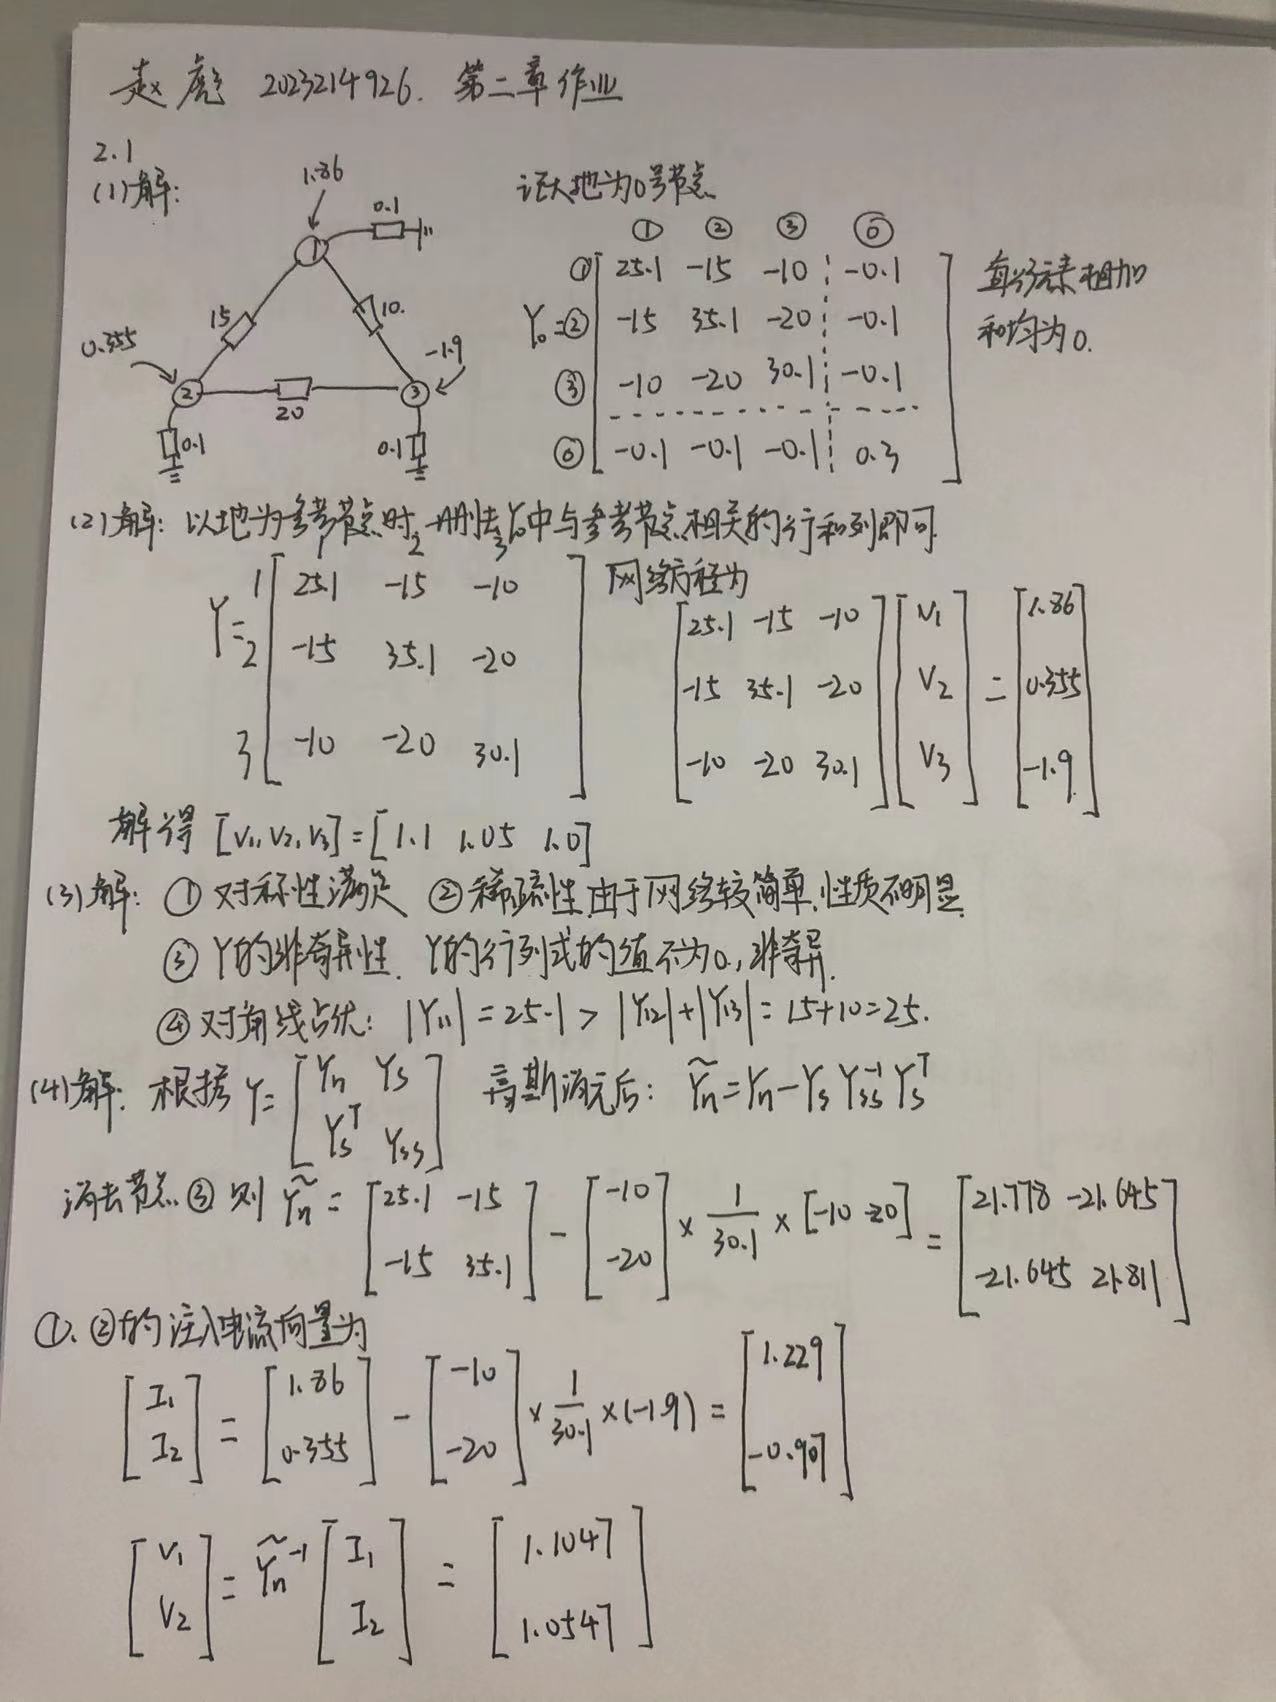 赵彪 2023214926. 第二章作业
2.1
(1)解:
1.86
0.1
①
15
10.
0.355
-1.9
②
③
20
0.1
0.1
记大地为0号节点
① ② ③ ⓪
① 25.1 -15 -10 -0.1
Y₀= ② -15 35.1 -20 -0.1
③ -10 -20 30.1 -0.1
⓪ -0.1 -0.1 -0.1 0.3
每行元素相加
和均为0.
(2)解: 以地为参考节点时, 删去Y₀中与参考节点相关的行和列即可
1 2 3
Y= 1 [25.1 -15 -10
2 -15 35.1 -20
3 -10 -20 30.1]
网络方程为
[25.1 -15 -10] [V₁] [1.86]
[-15 35.1 -20] [V₂] = [0.355]
[-10 -20 30.1] [V₃] [-1.9]
解得 [V₁, V₂, V₃] = [1.1 1.05 1.0]
(3)解: ① 对称性满足 ② 稀疏性,由于网络较简单,性质不明显
③ Y的非奇异性. Y的行列式的值不为0, 非奇异.
④ 对角线占优: |Y₁₁| = 25.1 > |Y₁₂|+|Y₁₃| = 15+10=25.
(4)解: 根据 Y= [Yn Ys; Ysᵀ Yss] 高斯消元后: Ỹn = Yn - Ys Yss⁻¹ Ysᵀ
消去节点③ 则 Ỹn = [25.1 -15; -15 35.1] - [-10; -20] × 1/30.1 × [-10 -20] = [21.778 -21.645; -21.645 21.811]
①、②的注入电流向量为
[I₁; I₂] = [1.86; 0.355] - [-10; -20] × 1/30.1 × (-1.9) = [1.229; -0.907]
[V₁; V₂] = Ỹn⁻¹ [I₁; I₂] = [1.1047; 1.0547]